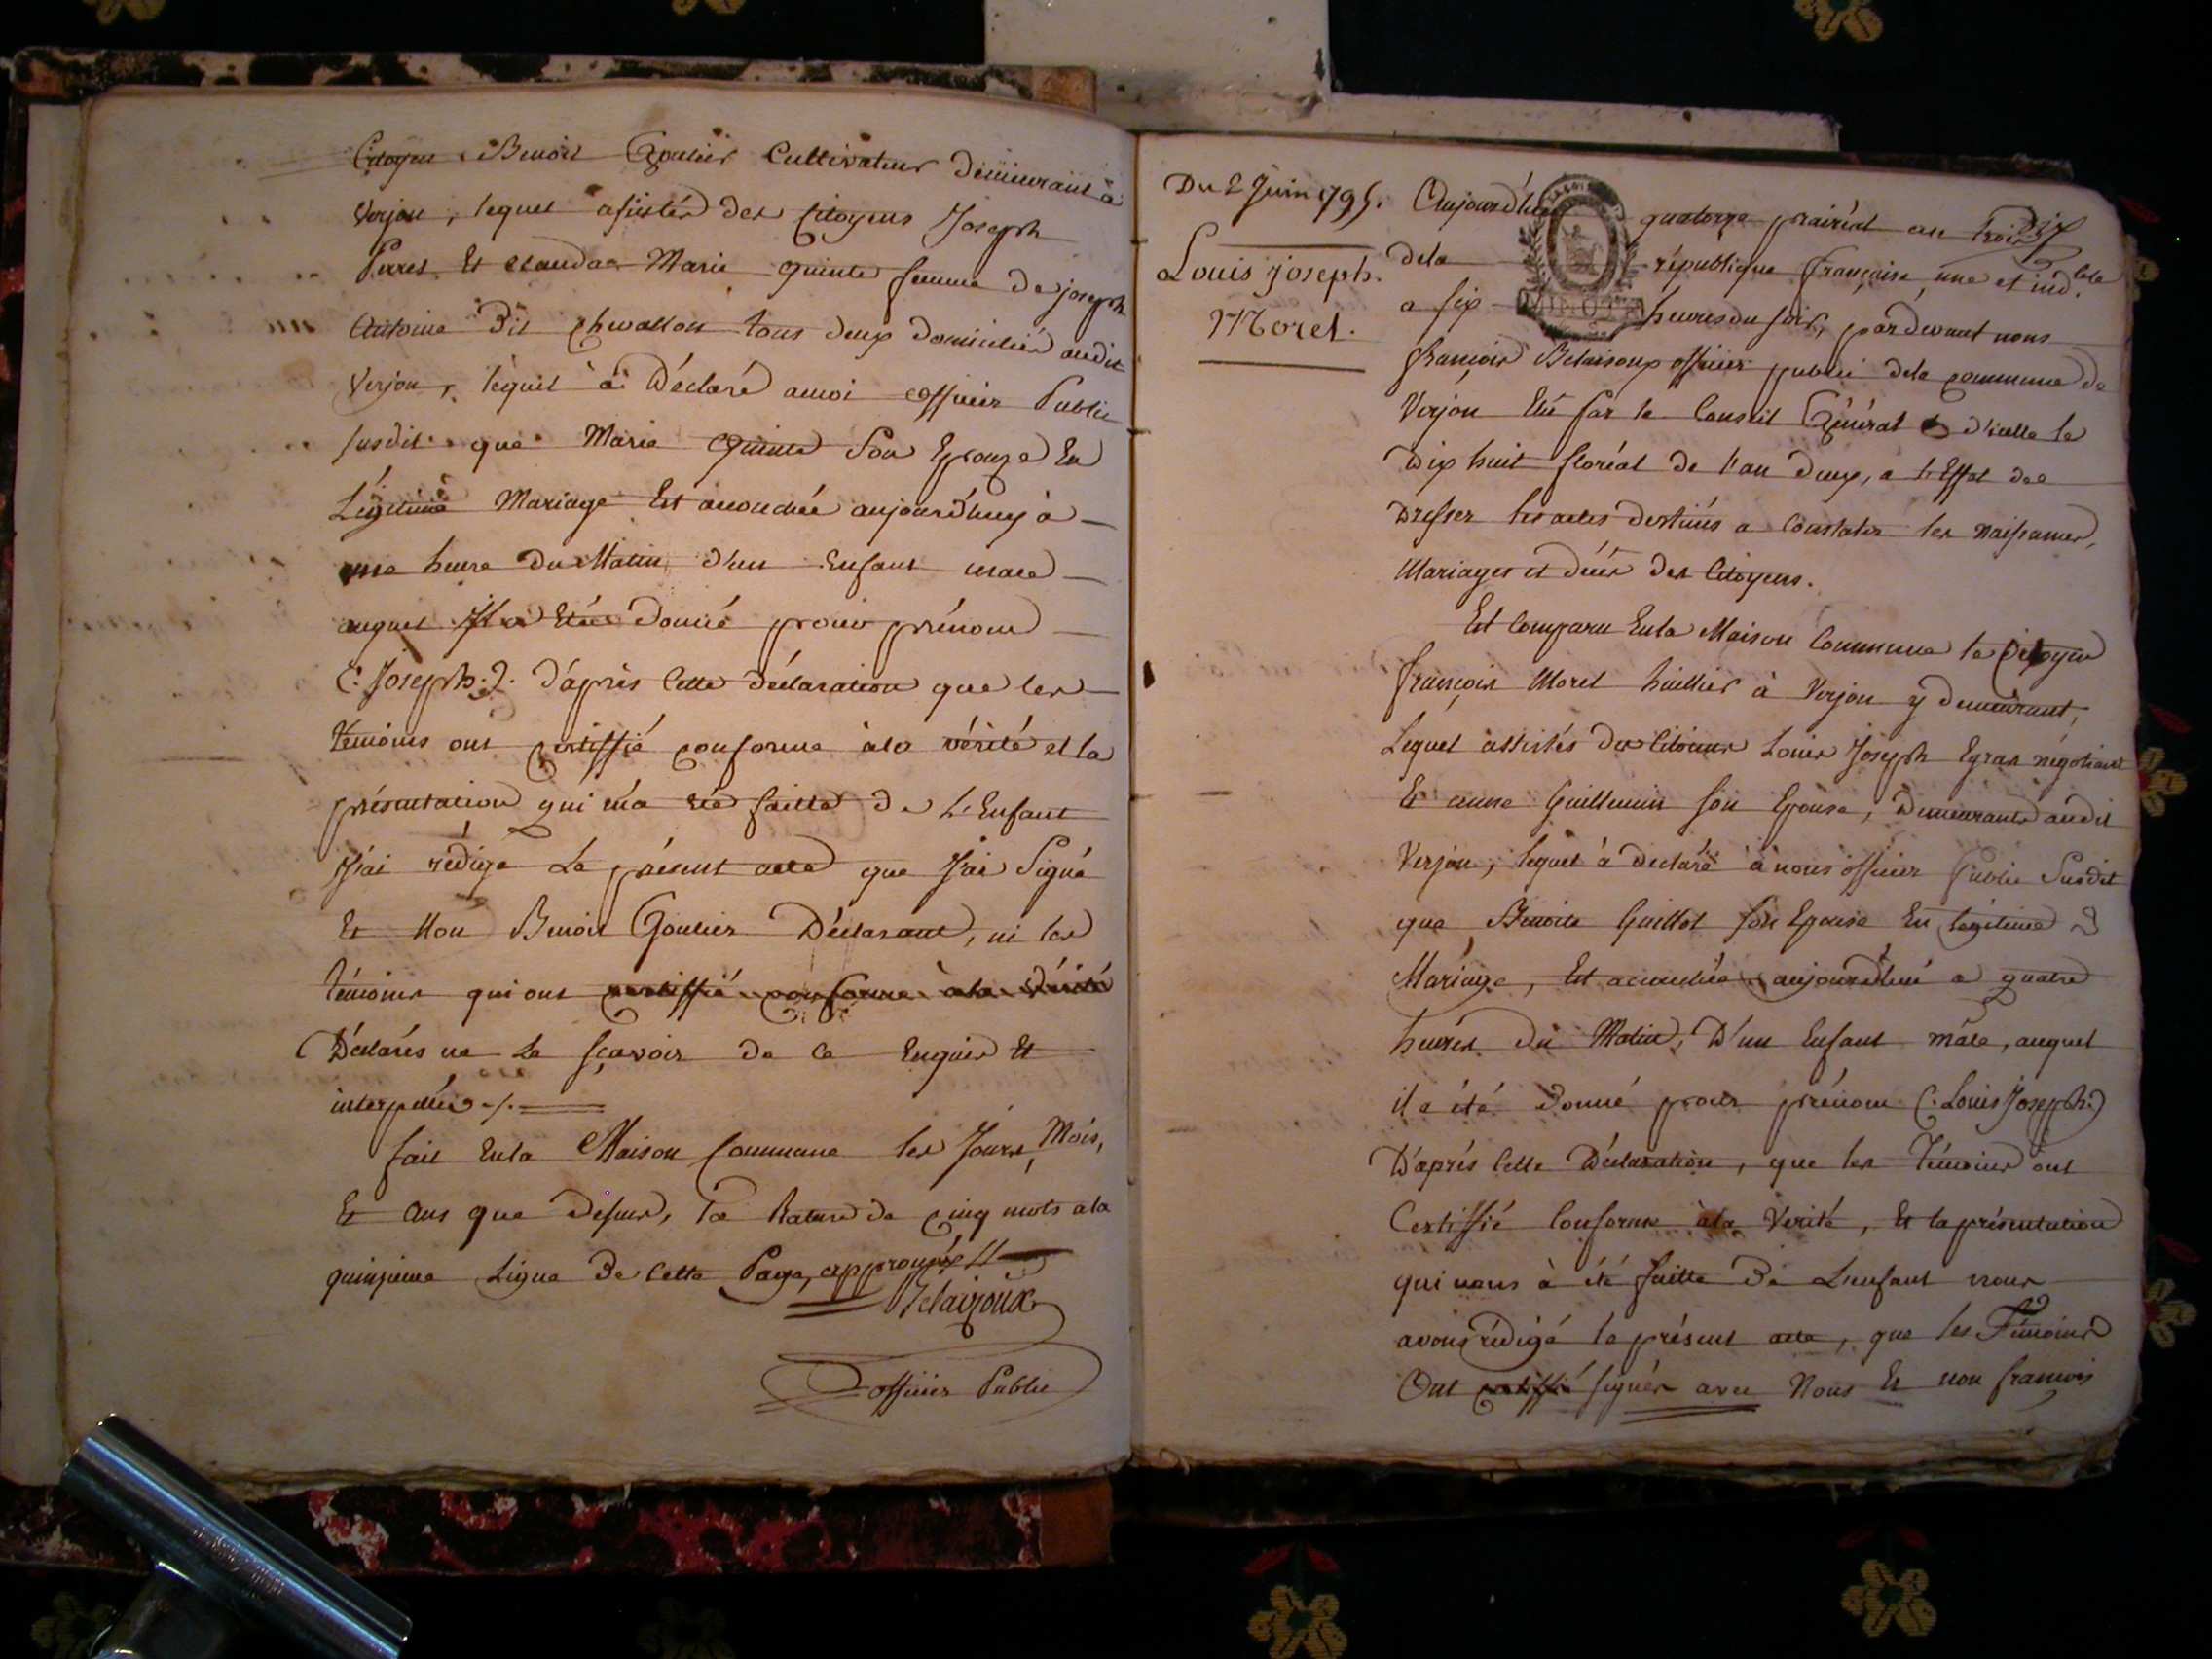 Citoyen Benoit Goulier Cultivateur demeurant à
Verjon, lequel asisté des Citoyens Joseph
Perret Et claudae Marie quinte femme de joseph
Antoine dit chevallon tous deux domicilié audit
Verjon, lequel à Déclaré amoi officier Public
susdit que Marie quinte Son Epouze En
Légitime Mariage Est acouchée aujourd'huy à
une heure du Matin, d'un Enfant male
auquel Il a Eté donné pour prénom
(: Joseph :). d'après Cette déclaration que les
témoins ont certiffié conforme àla vérité et la
présentation qui m'a été faitte de L'Enfant
J'ai rédigé Le présent acte que J'ai Signé
Et Non Benoit Goulier Déclarant, ni les
témoins qui ont certiffié conforme à la vérité
Déclarés ne Le sçavoir de ce Enquis Et
interpellés ./.
fait Enla Maison Commune les Jours, Mois,
Et Ans que dessus, la Rature de cinq mots ala
quinzieme Ligne de Cette Page, approuvée //
Belaizoux
officier Public
Du 2 Juin 1795.
Louis joseph.
Morel.
Aujourd'hui quatorze prairéal an trois
dela république française, une et ind.ble
a six heures du soir, pardevant nous
françois Belaisoux officier public dela commune de
Verjon Elu par le Conseil Général d'icelle le
Dix huit floréal de l'an deux, a L'Effet de
Dresser les actes destinés a Constater les naissances,
Mariages et décès des Citoyens.
Est Comparu Enla Maison Commune le Citoyen
françois Morel huillier à Verjon y demeurant,
Lequel assistés des Citoiens Louis Joseph Egras négotiant
Et anne Guillemin son Epouse, Demeurants audit
Verjon, lequel à déclaré à nous officier Public Susdit
que Benoite Guillot son Epouse En légitime
Mariage, Est acouchée aujourd'hui a quatre
heures du Matin, D'un Enfant mâle, auquel
il a été donné pour prénom (: Louis Joseph :)
D'après Cette Déclaration, que les Témoins ont
Certiffié Conforme àla Verité, Et la présentation
qui nous à été faitte de L'enfant nous
avons rédigé le présent acte, que les Témoins
Ont certiffié signés avec Nous Et non francois